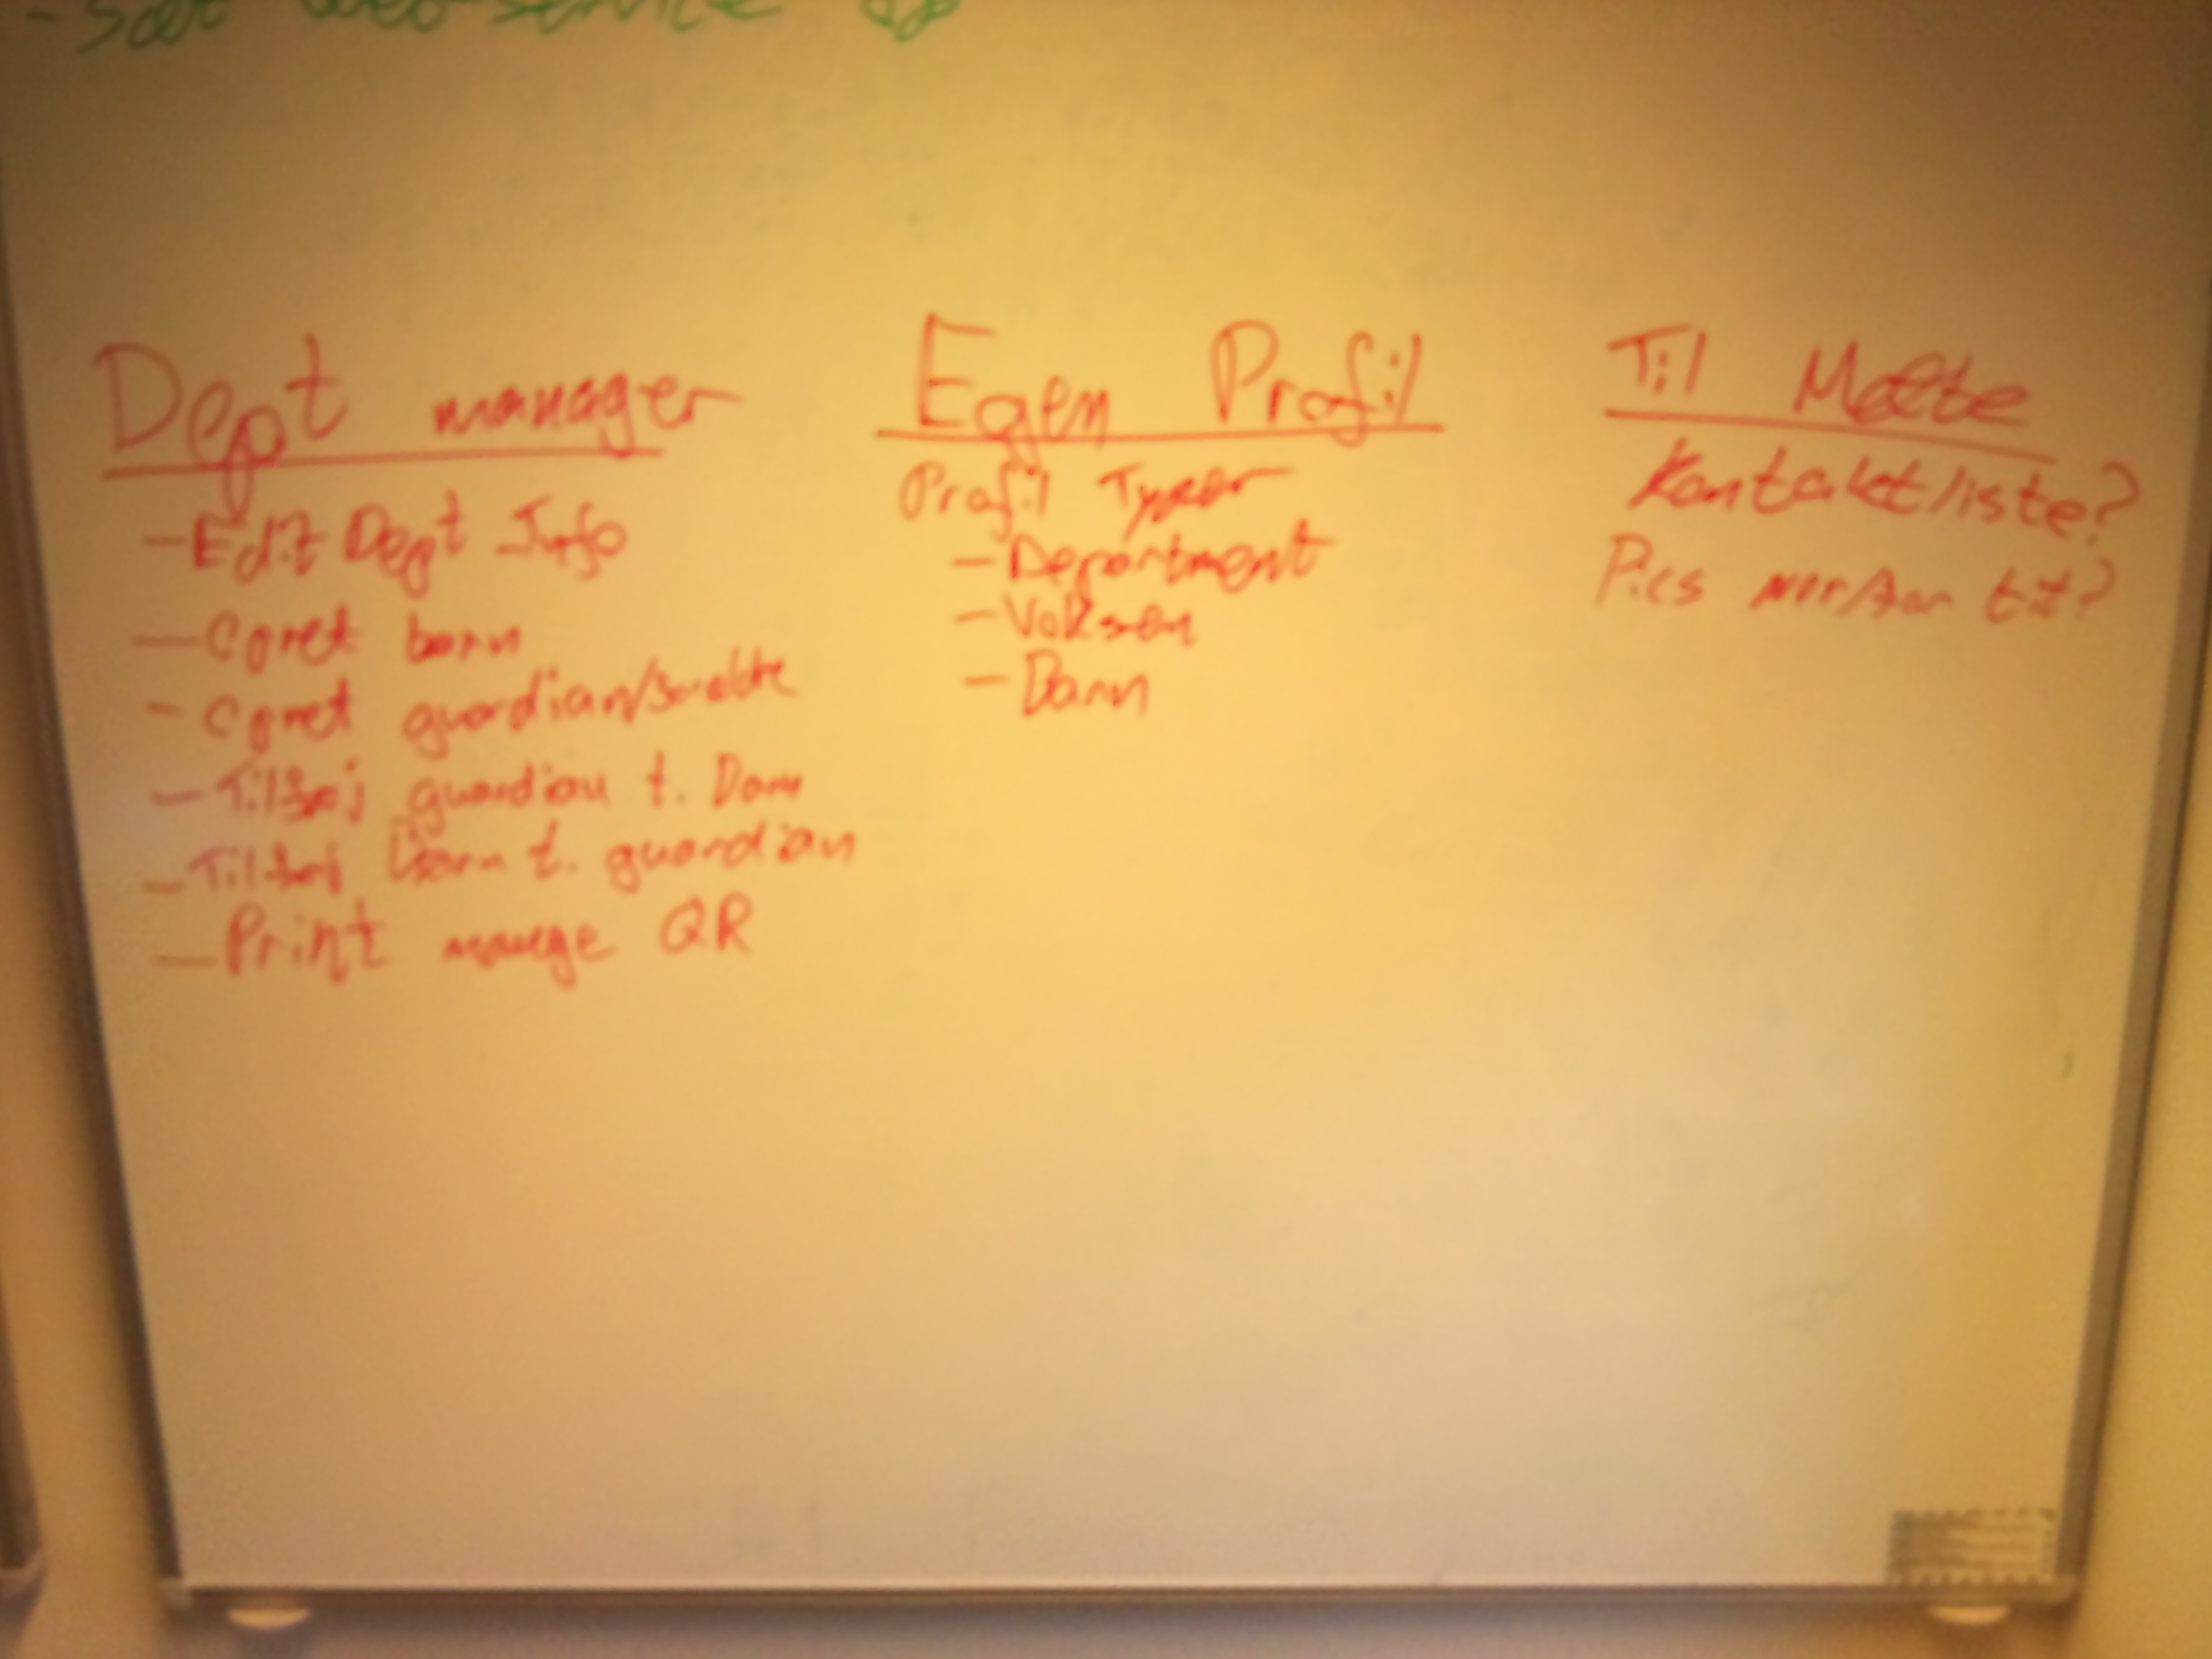 - Sæt web-service op
Dept manager
- Edit Dept Info
- Opret børn
- Opret guardian/forældre
- Tilføj guardian t. barn
- Tilføj barn t. guardian
- Print mange QR
Egen Profil
Profil Typer
- Department
- Voksen
- Barn
Til Møde
Kontaktliste?
Pics tit?